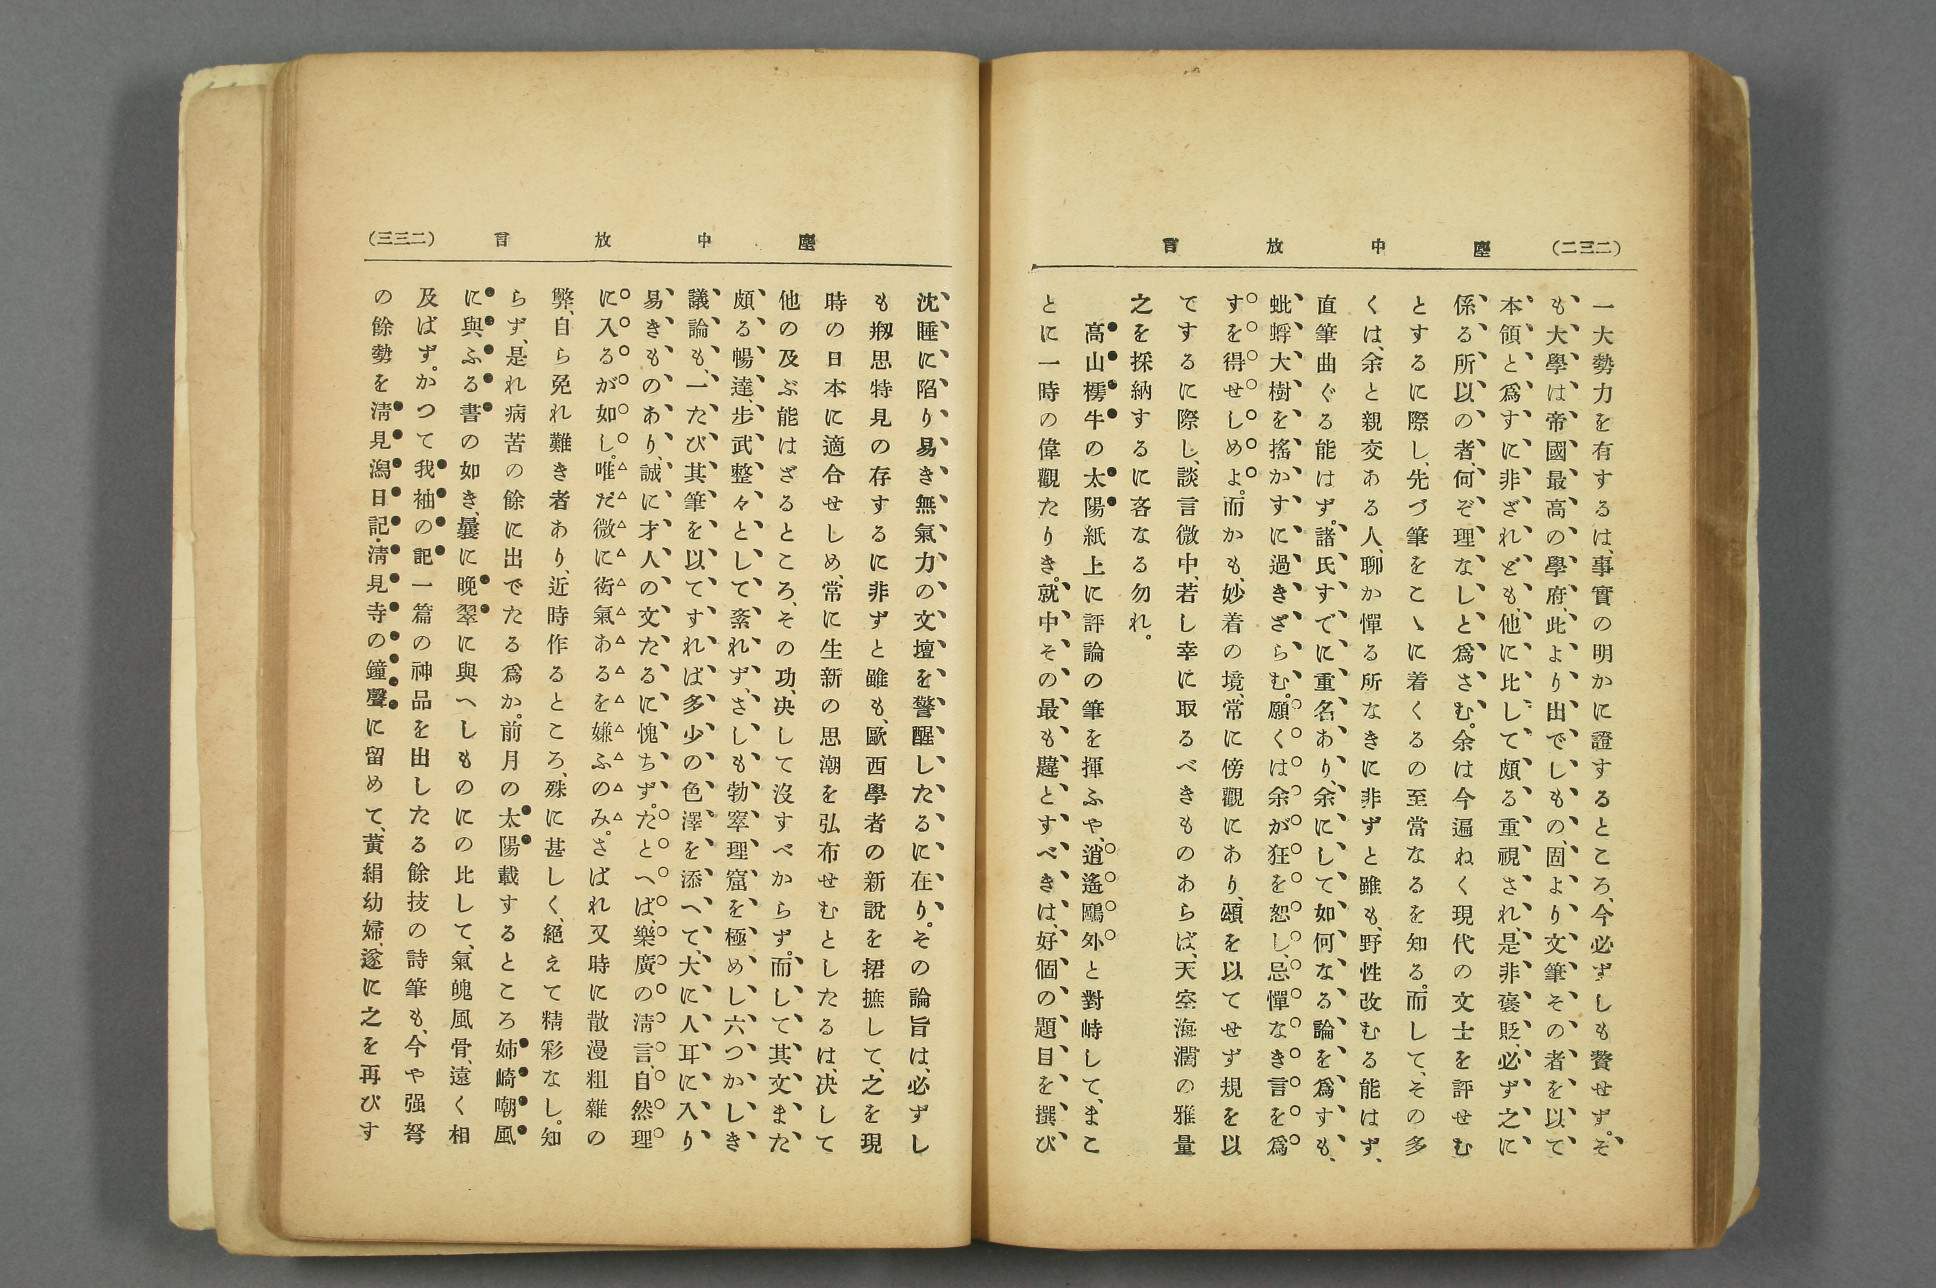 (二三二) 塵中放言
一大勢力を有するは、事實の明かに證するところ、今必ずしも贅せず。そ
も大學は帝國最高の學府、此より出でしもの、固より文筆その者を以て
本領と爲すに非ざれども、他に比して頗る重視され、是非褒貶、必ず之に
係る所以の者、何ぞ理なしと爲さむ。余は今遍ねく現代の文士を評せむ
とするに際し、先づ筆をこゝに着くるの至當なるを知る。而して、その多
くは、余と親交ある人、聊か憚る所なきに非ずと雖も、野性改むる能はず、
直筆曲ぐる能はず。諸氏すでに重名あり、余にして如何なる論を爲すも、
蚍蜉大樹を搖かすに過きざらむ。願くは余が狂を恕し、忌憚なき言を爲
すを得せしめよ。而かも、妙着の境、常に傍觀にあり、頭を以てせず規を以
てするに際し、談言微中、若し幸に取るべきものあらば、天空海濶の雅量
之を採納するに吝なる勿れ。
高山樗牛の太陽紙上に評論の筆を揮ふや、逍遙鷗外と對峙して、まこ
とに一時の偉觀たりき。就中その最も韙とすべきは、好個の題目を撰び
(二三三) 塵中放言
沈睡に陷り易き無氣力の文壇を警醒したるに在り。その論旨は、必ずし
も剏思特見の存するに非ずと雖も、歐西學者の新說を捃摭して、之を現
時の日本に適合せしめ、常に生新の思潮を弘布せむとしたるは、决して
他の及ぶ能はざるところ、その功、决して沒すべからず。而して其文また
頗る暢達、步武整々として紊れず、さしも勃窣理窟を極めし六つかしき
議論も、一たび其筆を以てすれば多少の色澤を添へて、大に人耳に入り
易きものあり、誠に才人の文たるに愧ちず。たとへば、樂廣の淸言、自然理
に入るが如し。唯だ微に衒氣あるを嫌ふのみ。さばれ又時に散漫粗雜の
弊、自ら免れ難き者あり、近時作るところ、殊に甚しく、絕えて精彩なし。知
らず、是れ病苦の餘に出でたる爲か。前月の太陽載するところ姉崎嘲風
に與ふる書の如き、曩に晚翠に與へしものにの比して、氣魄風骨、遠く相
及ばず。かつて我袖の記一篇の神品を出したる餘技の詩筆も、今や强弩
の餘勢を淸見潟日記・淸見寺の鐘聲に留めて、黃絹幼婦、遂に之を再びす